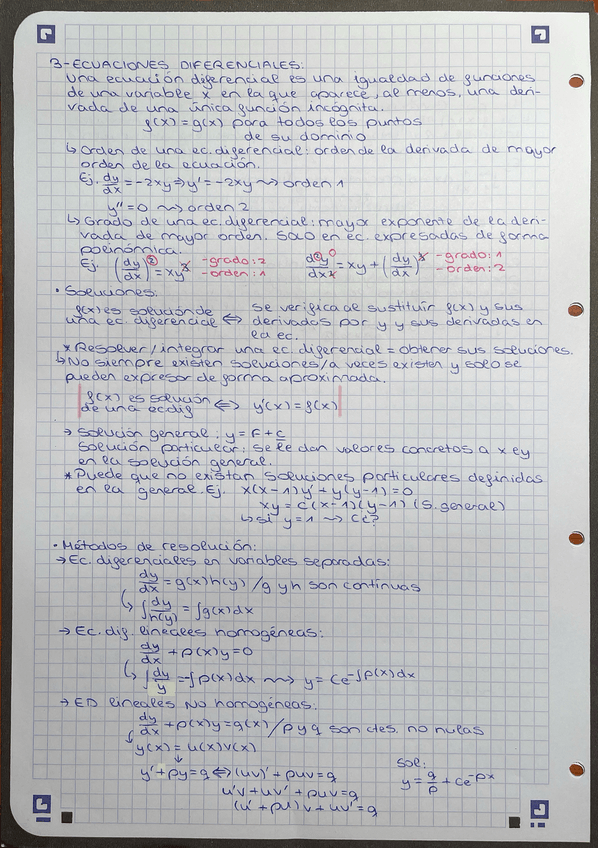 3-ECUACIONES DIFERENCIALES:
Una ecuación diferencial es una igualdad de funciones
de una variable x en la que aparece, al menos, una deri-
vada de una única función incógnita.
f(x) = g(x) para todos los puntos
de su dominio
↳ Orden de una ec. diferencial: orden de la derivada de mayor
orden de la ecuación.
Ej. dy/dx = -2xy ⇒ y' = -2xy ⇝ orden 1
y'' = 0 ⇝ orden 2
↳ Grado de una ec. diferencial: mayor exponente de la deri-
vada de mayor orden. SOLO en ec. expresadas de forma
poeinómica.
Ej. (dy/dx)² = xy³ -grado: 2 -orden: 1
d²y/dx² = xy + (dy/dx)³ -grado: 1 -orden: 2
• Soluciones:
f(x) es solución de una ec. diferencial ⇔ se verifica al sustituir f(x) y sus
derivadas por y y sus derivadas en
la ec.
* Resolver/integrar una ec. diferencial = obtener sus soluciones.
↳ No siempre existen soluciones/a veces existen y solo se
pueden expresar de forma aproximada.
f(x) es solución
de una ec dif ⇔ y'(x) = f(x)
→ Solución general: y = F + C
Solución particular: se le dan valores concretos a x e y
en la solución general.
* Puede que no existan soluciones particulares definidas
en la general. Ej. x(x-1)y' + y(y-1) = 0
xy = c(x-1)(y-1) (S. general)
↳ si y = 1 ⇝ C?
• Métodos de resolución:
→ Ec. diferenciales en variables separadas:
dy/dx = g(x)h(y) / g y h son continuas
↳ ∫dy/h(y) = ∫g(x)dx
→ Ec. dif. lineales homogéneas:
dy/dx + p(x)y = 0
↳ ∫dy/y = -∫p(x)dx ⇝ y = Ce^-∫p(x)dx
→ ED lineales No homogéneas:
dy/dx + p(x)y = q(x) / p y q son ctes. no nulas
y(x) = u(x)v(x)
↓
y' + py = q ⇔ (uv)' + puv = q
u'v + uv' + puv = q
(u' + pu)v + uv' = q
sol:
y = q/p + ce^-px